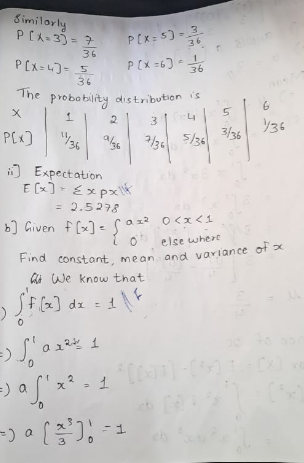 Similarly
P[X=3] = 7/36 P[X=5] = 3/36
P[X=4] = 5/36 P[X=6] = 1/36
The probability distribution is
X | 1 | 2 | 3 | 4 | 5 | 6
P[X] | 11/36 | 9/36 | 7/36 | 5/36 | 3/36 | 1/36
ii] Expectation
E[x] = Σ x px
= 2.5278
b] Given f[x] = { ax² 0<x<1
0 elsewhere
Find constant, mean and variance of x
We know that
) ∫₀¹ f[x] dx = 1
=) ∫₀¹ a x² = 1
=) a ∫₀¹ x² = 1
=) a [x³/3]₀¹ = 1